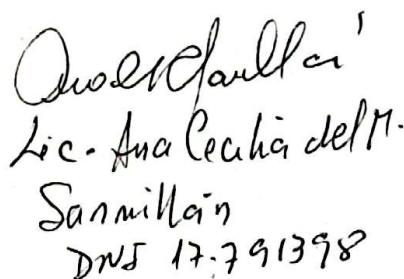 Lic. Ana Cecilia del M.
Sanmillán
DNI 17.791398